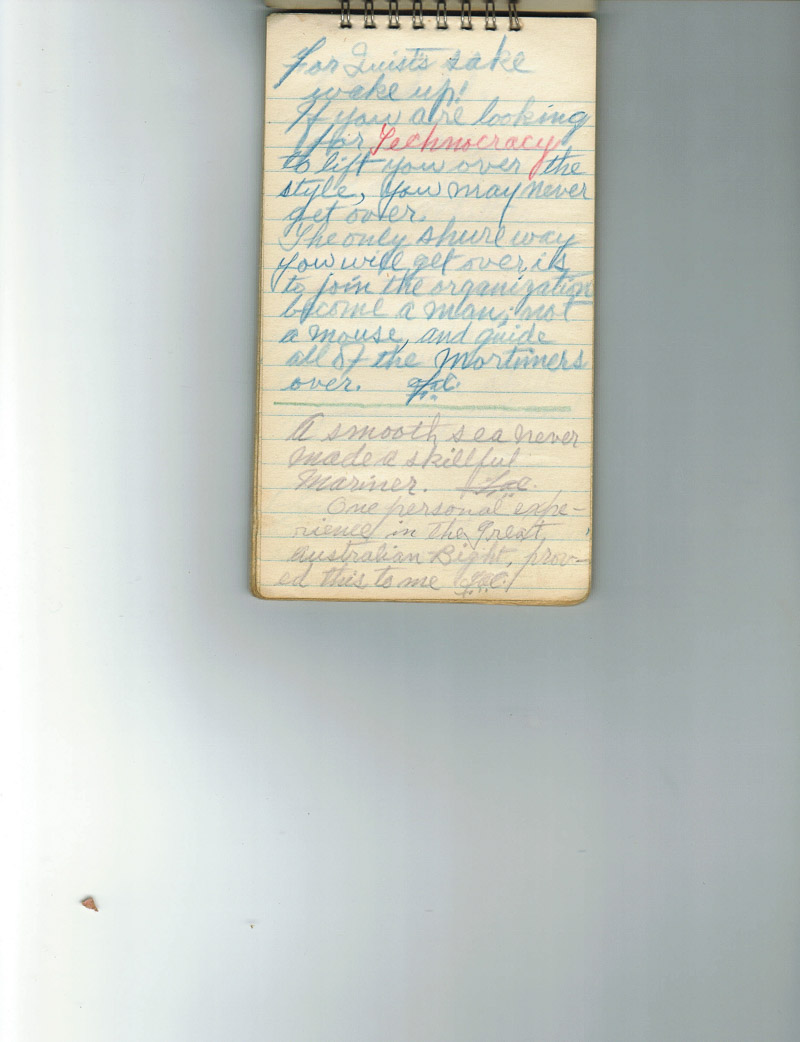 For Quist's sake
wake up!
If you are looking
for Technocracy
to lift you over the
style, you may never
get over.
The only shure way
you will get over is
to join the organization
become a man, not
a mouse, and guide
all of the Mortimers
over.
A smooth sea never
made a skillful
Mariner.
One personal expe-
rience in the Great
Australian Bight, prov-
ed this to me